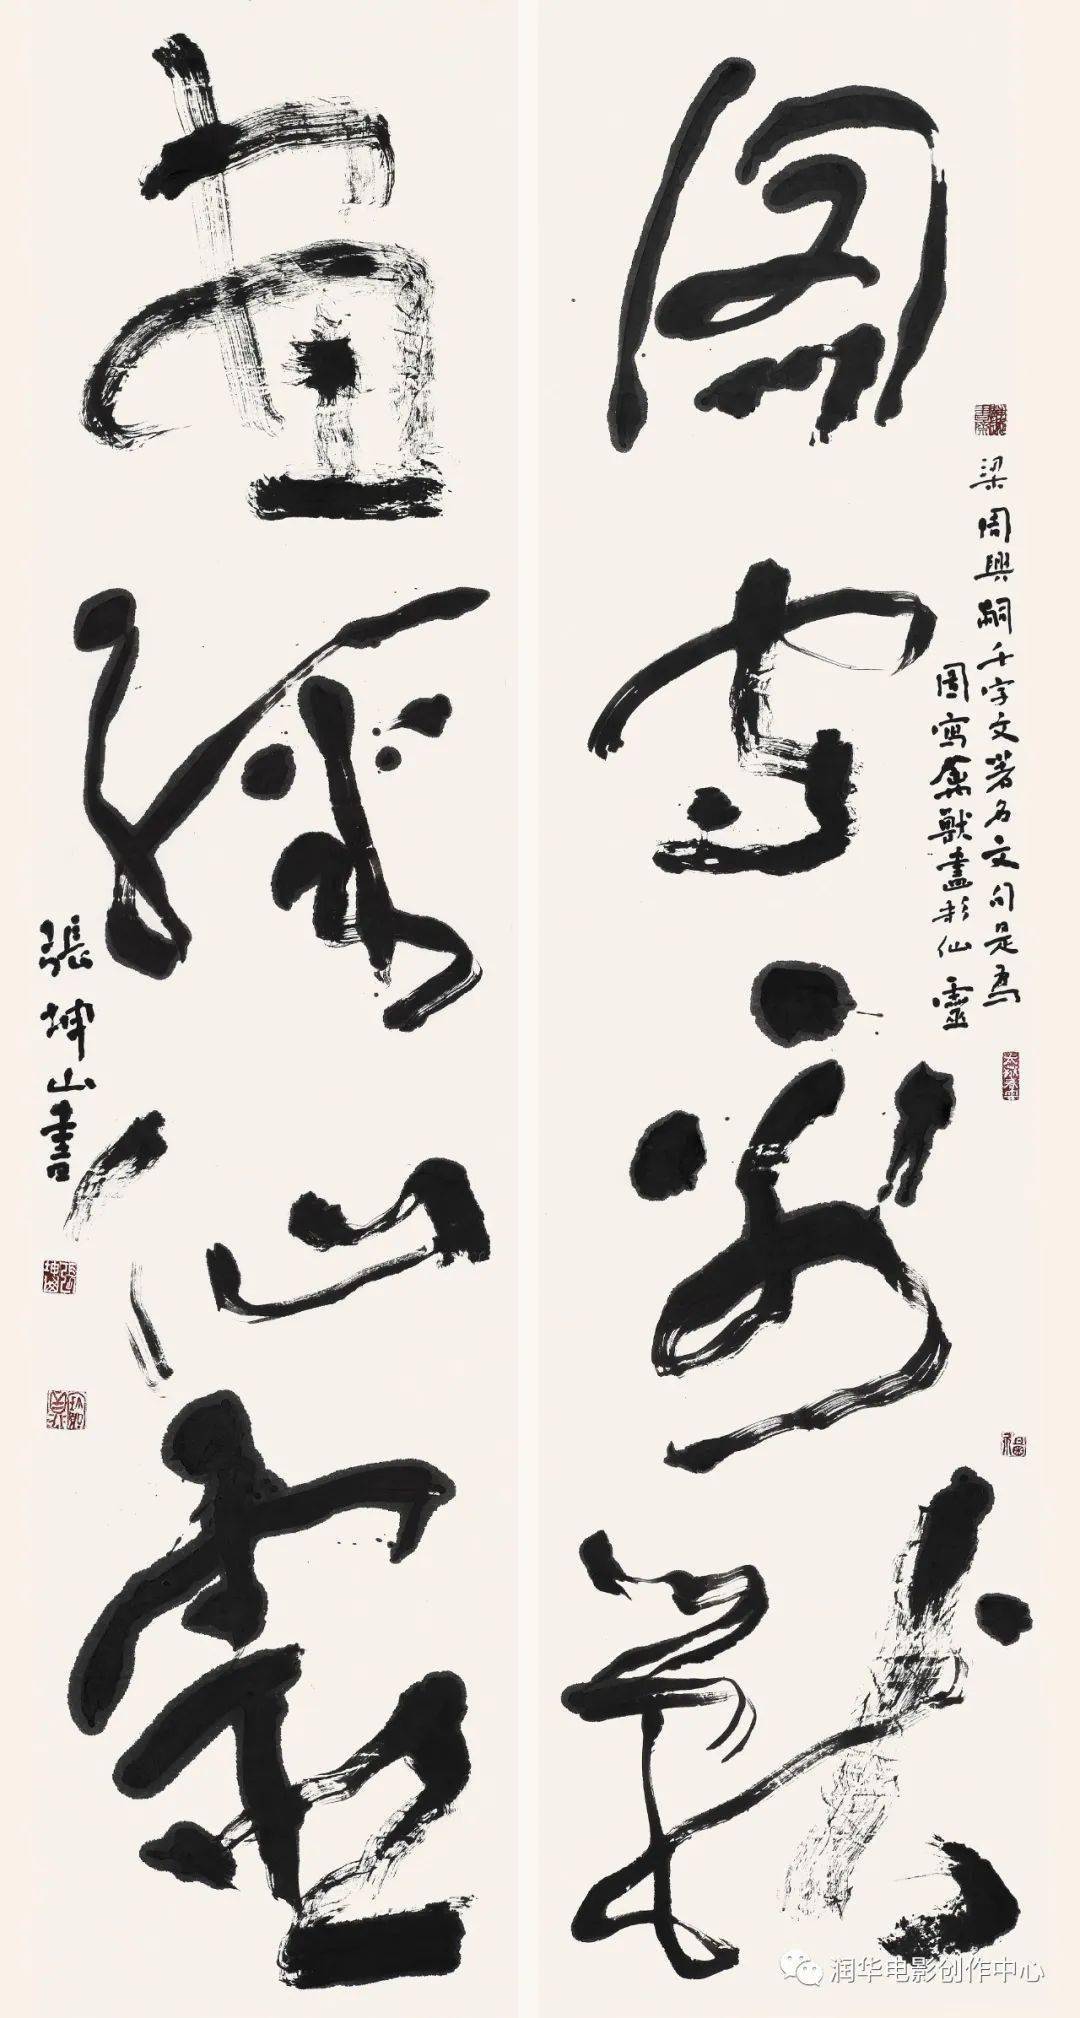 圖寫禽獸
梁周興嗣千字文著名文句是為
圖寫禽獸畫彩仙靈
畫綵仙靈
張坤山書
润华电影创作中心